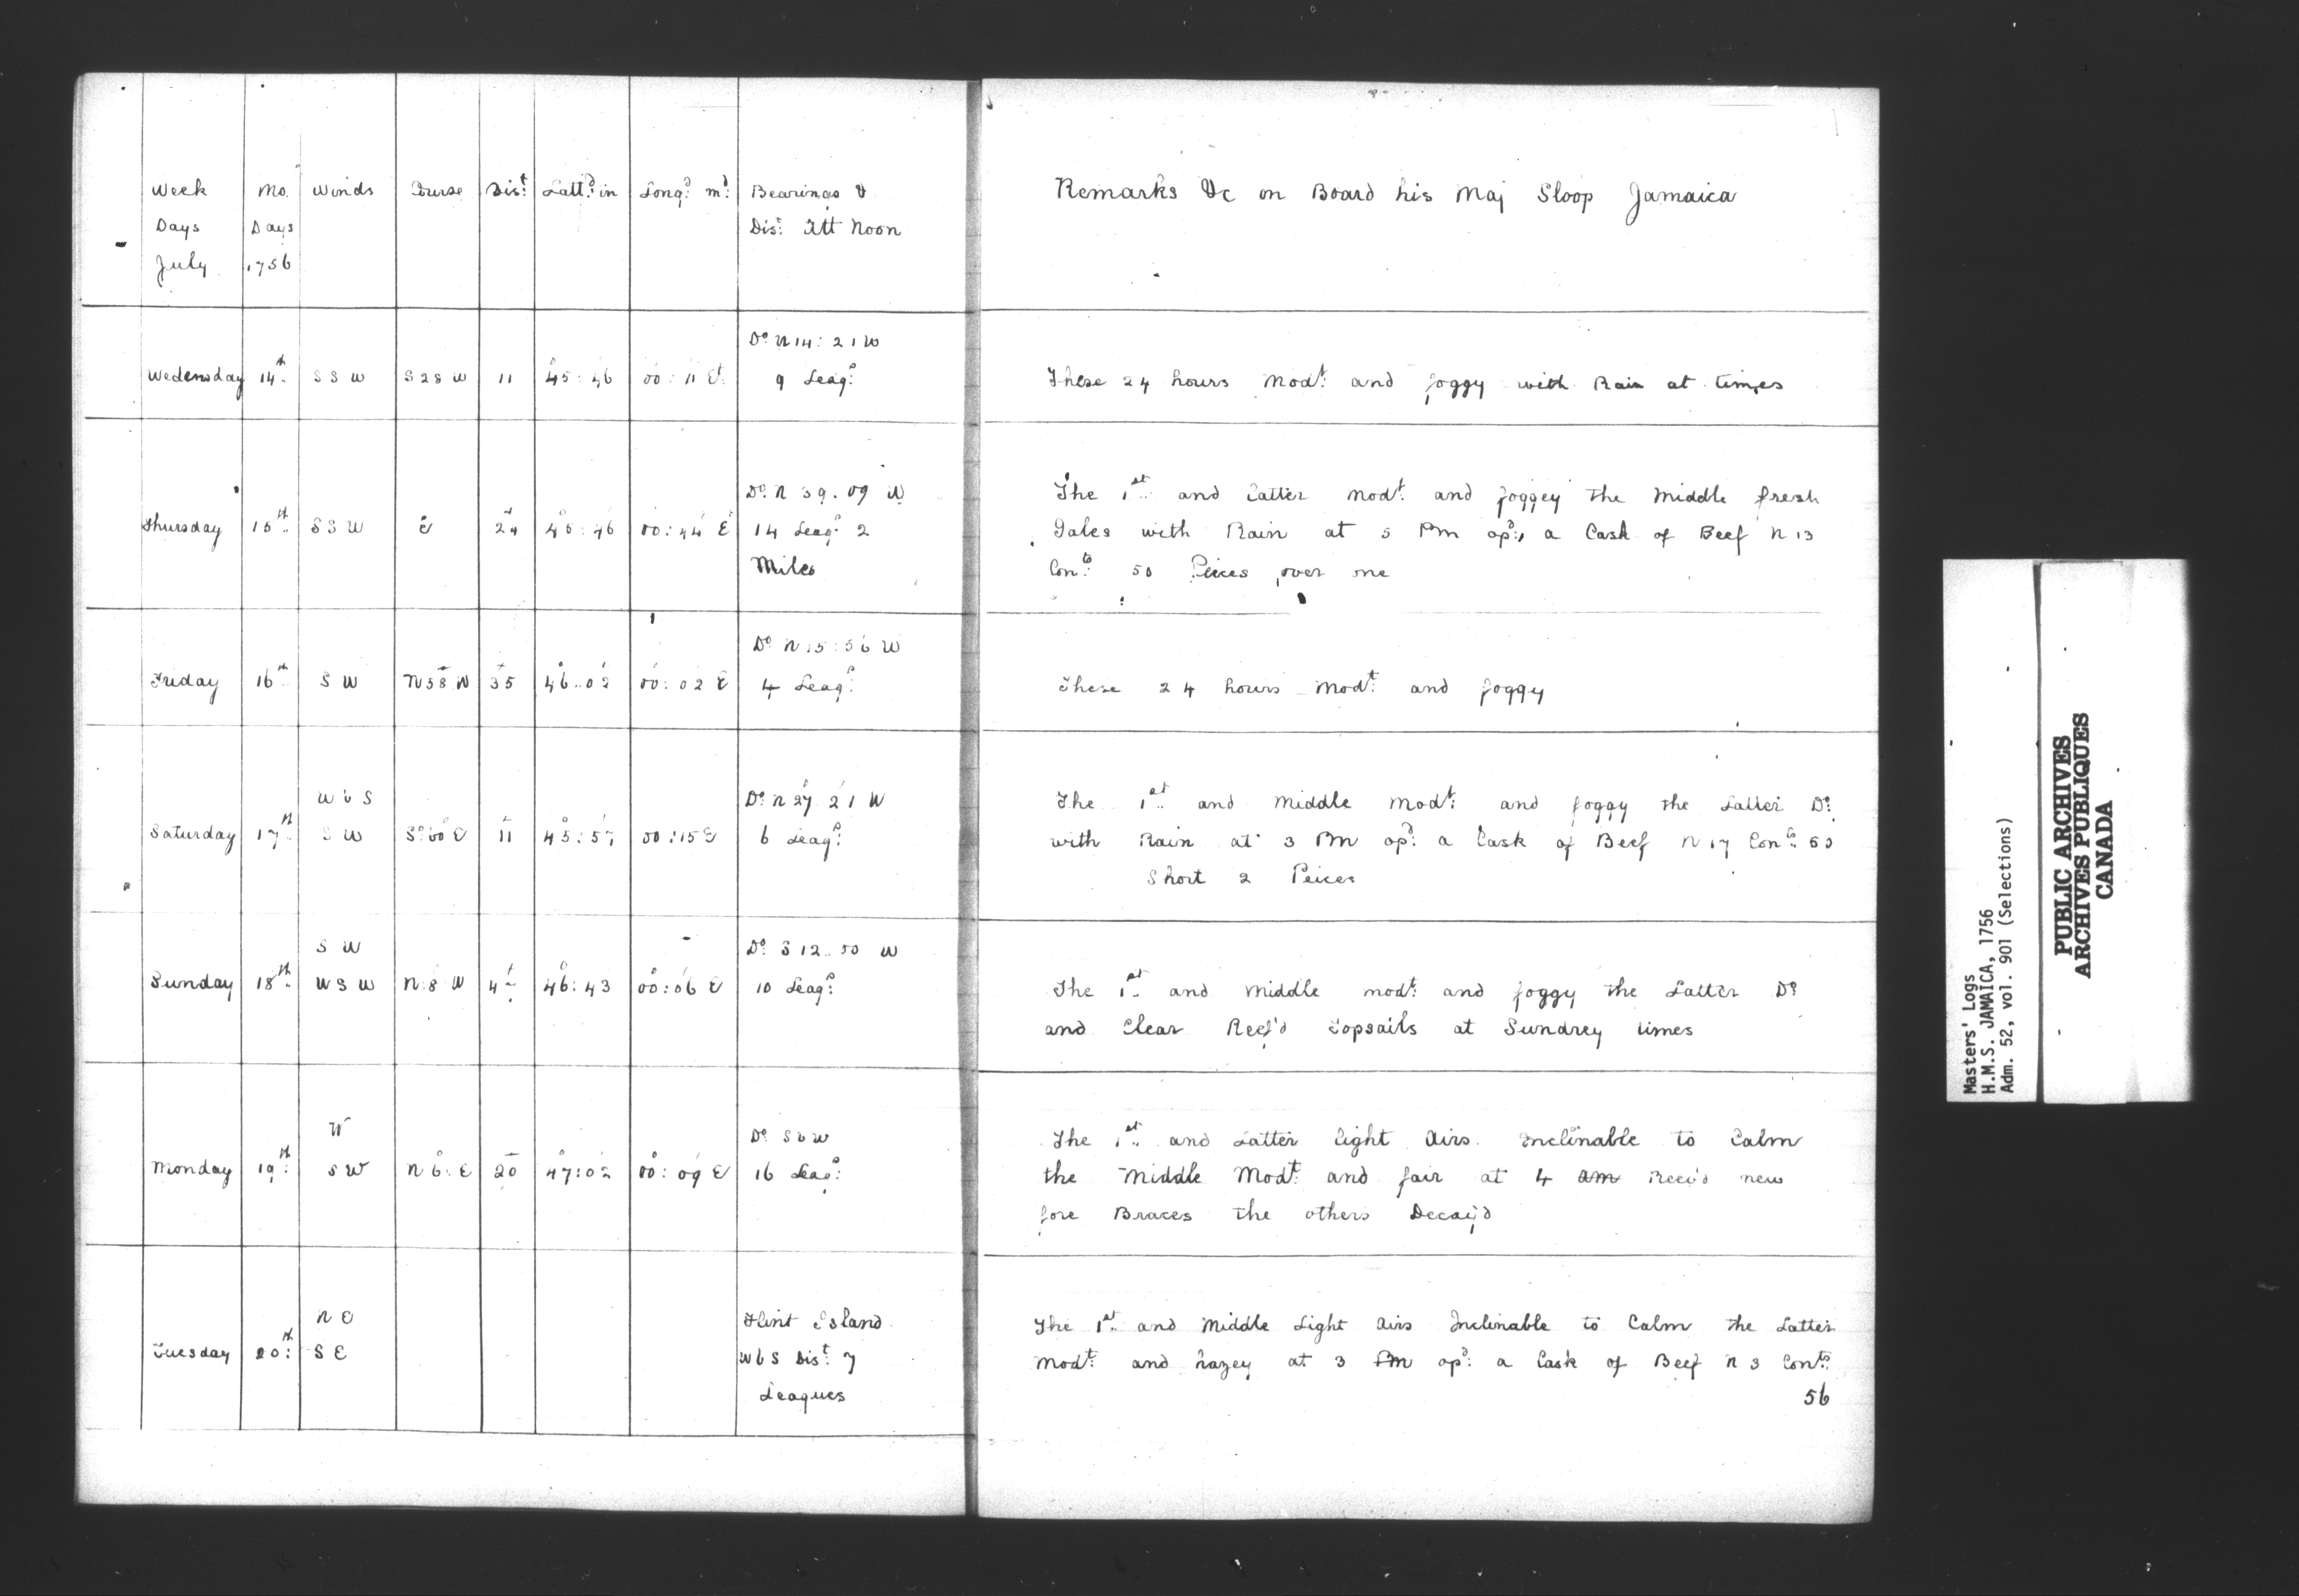 Week Mo. Winds Course Dist. Latt.d in Long.d m.d Bearings &
Days Days Dis.t Att Noon
July 1756
Remarks &c on Board his Maj Sloop Jamaica
Do N 14 : 21 W
Wedensday 14th S S W S 28 W 11 45 : 46 00 : 11 E 9 Leag.s
These 24 hours Mod.t and foggy with Rain at times
Do N 39 . 09 W
Thursday 15th S S W E 24 45 : 46 00 : 44 E 14 Leag.s 2
Miles
The 1st and Latter Mod.t and foggey the Middle fresh
Gales with Rain at 5 PM op.d a Cask of Beef N 13
Con.ts 50 Peices over one
Do N 15 : 56 W
Friday 16th S W N 58 W 35 46 .. 02 00 : 02 E 4 Leag.s
These 24 hours Mod.t and foggy
W b S Do N 27 21 W
Saturday 17th S W S 60 E 11 45 : 57 00 : 15 E 6 Leag.s
The 1st and Middle Mod.t and foggy the Latter Do
with Rain at 3 PM op.d a Cask of Beef N 17 Con.ts
Short 2 Peices
S W Do S 12 .. 50 W
Sunday 18th W S W N : 8 W 46 : 43 00 : 06 E 10 Leag.s
The 1st and Middle mod.t and foggy the Latter Do
and Clear Reef'd Topsails at Sundrey times
W Do S b W
Monday 19th S W N 6 : E 20 47 : 02 00 : 09 E 16 Leag.s
The 1st and Latter light Airs Inclinable to Calm
the Middle Mod.t and fair at 4 am Reev'd new
fore Braces the others Decay'd
N E Flint Island
Tuesday 20th S E W b S Dist. 7
Leagues
The 1st and Middle Light Airs Inclinable to Calm the Latter
Mod.t and hazey at 3 PM op.d a Cask of Beef N 3 Con.ts
56
Masters' Logs
H.M.S. JAMAICA, 1756
Adm. 52, vol. 901 (Selections)
PUBLIC ARCHIVES
ARCHIVES PUBLIQUES
CANADA